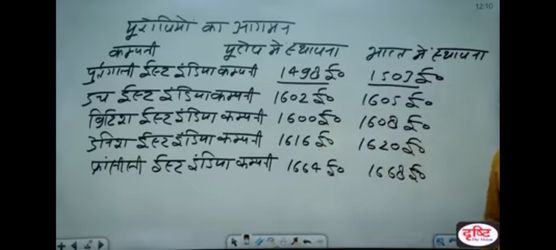 12:10
यूरोपियों का आगमन
कम्पनी यूरोप मे स्थापना भारत में स्थापना
पुर्तगाली ईस्ट इंडिया कम्पनी 1498 ई० 1503 ई०
डच ईस्ट इंडिया कम्पनी 1602 ई० 1605 ई०
ब्रिटिश ईस्ट इंडिया कम्पनी 1600 ई० 1608 ई०
डेनिश ईस्ट इंडिया कम्पनी 1616 ई० 1620 ई०
फ्रांसीसी ईस्ट इंडिया कम्पनी 1664 ई० 1668 ई०
दृष्टि